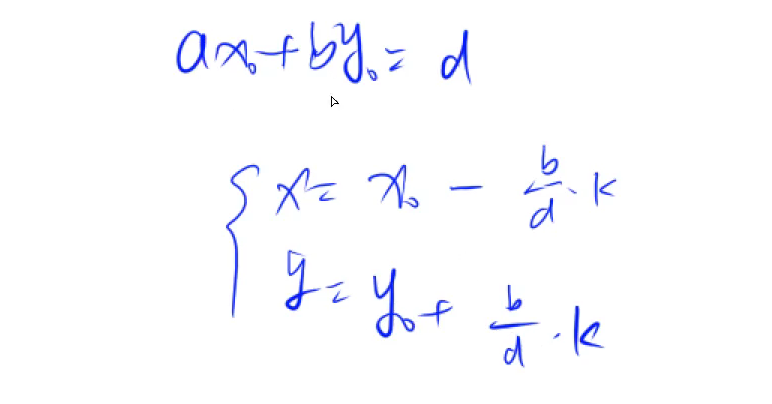 ax₀+by₀= d
x= x₀ - b/d·k
y= y₀+ b/d·k